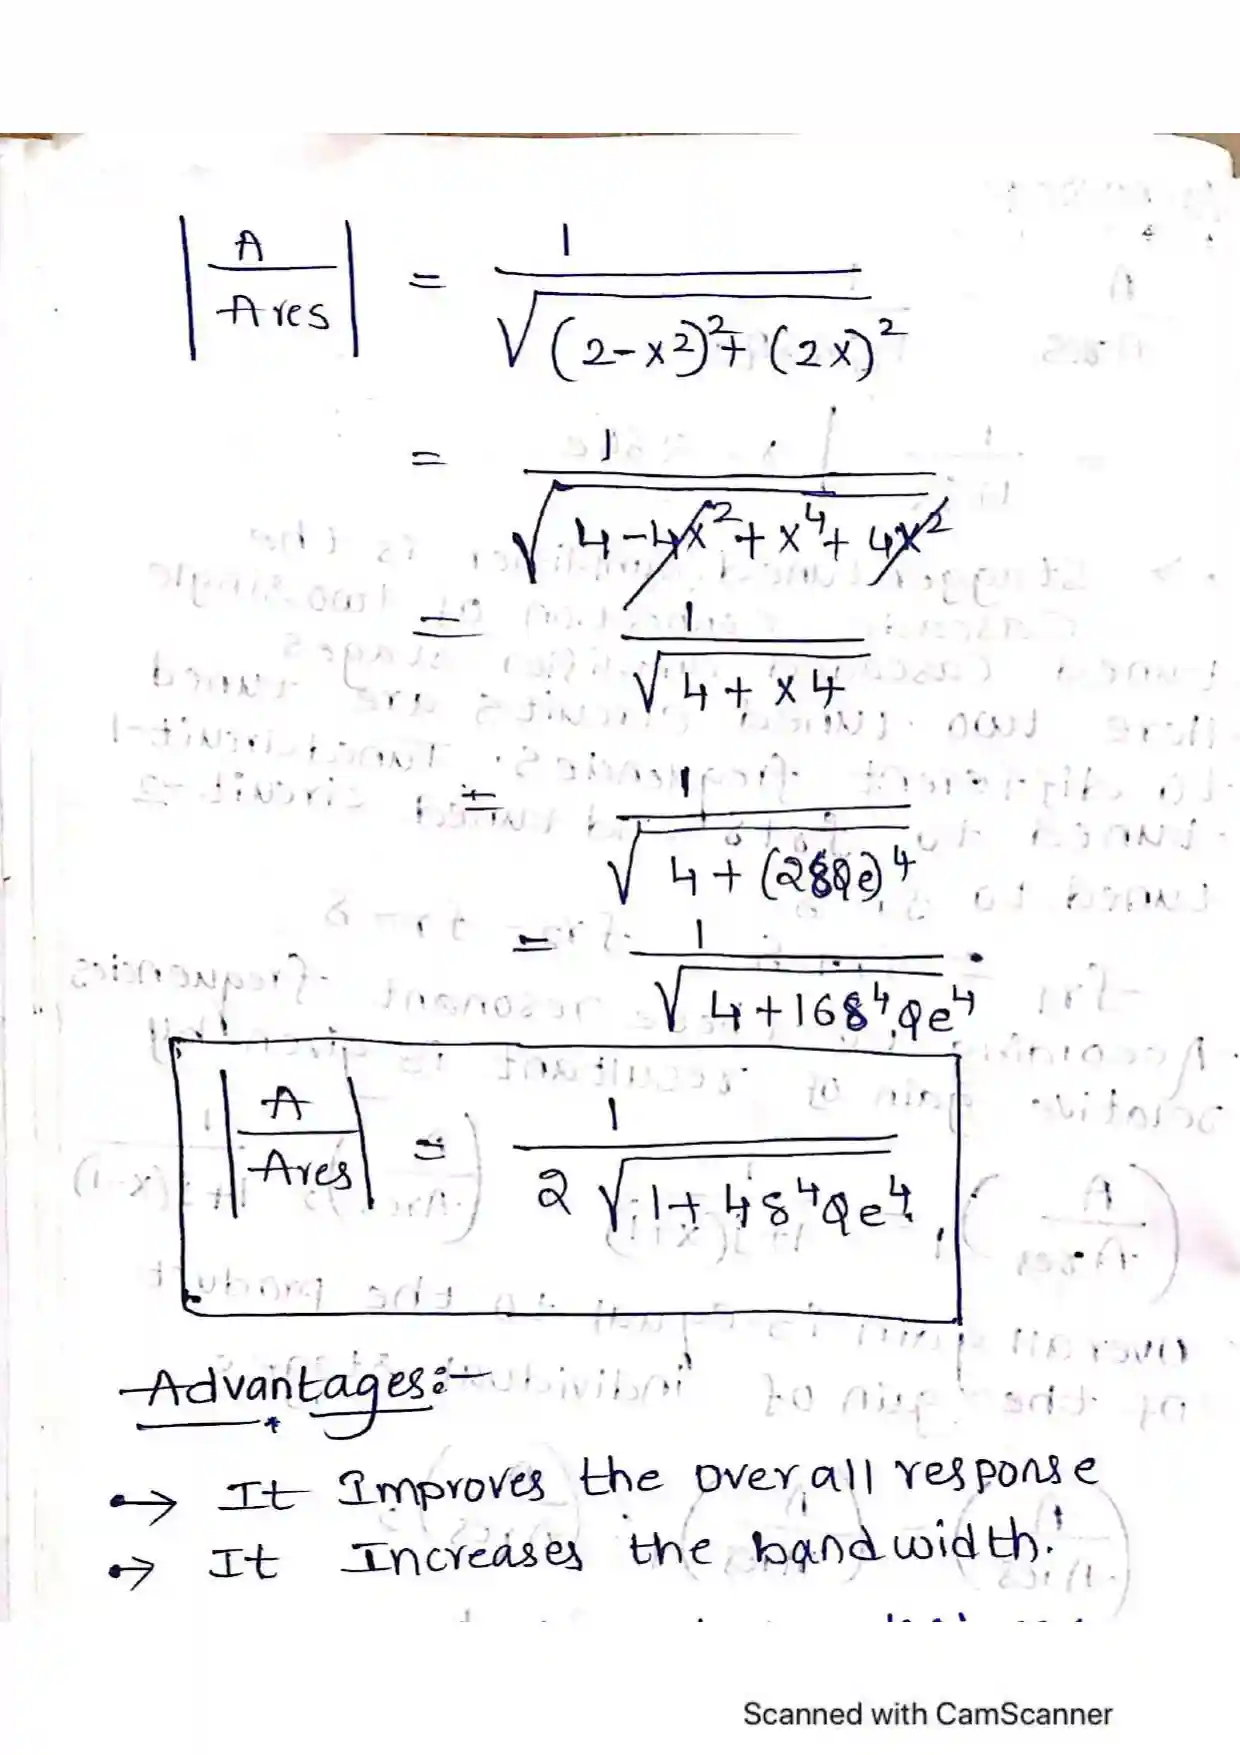 |A/Ares| = 1/√((2-x²)²+(2x)²)
= 1/√(4-4x²+x⁴+4x²)
= 1/√(4+x4)
= 1/√(4+(2δQe)⁴)
= 1/√(4+16δ⁴Qe⁴)
|A/Ares| = 1/(2√(1+4δ⁴Qe⁴))
Advantages:-
→ It Improves the overall response
→ It Increases the bandwidth.
Scanned with CamScanner